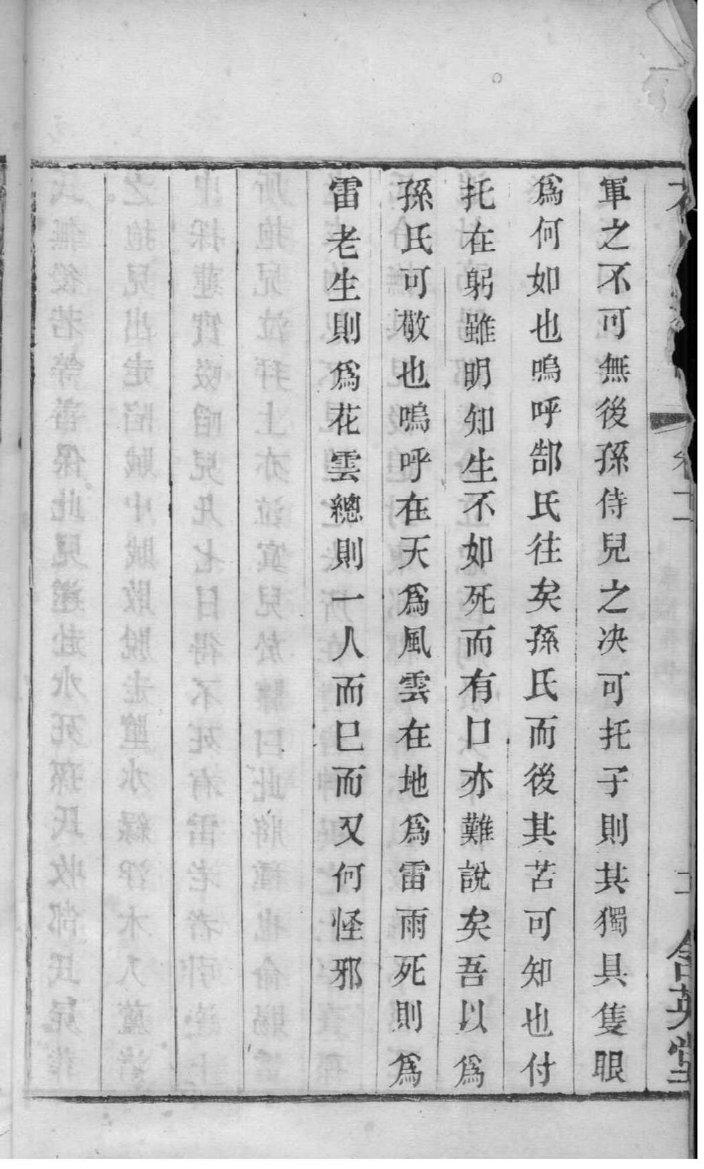 軍之不可無後孫侍兒之决可托子則其獨具隻眼
爲何如也嗚呼郜氏往矣孫氏而後其苦可知也付
托在躬雖明知生不如死而有口亦難說矣吾以爲
孫氏可敬也嗚呼在天爲風雲在地爲雷雨死則爲
雷老生則爲花雲總則一人而巳而又何怪邪